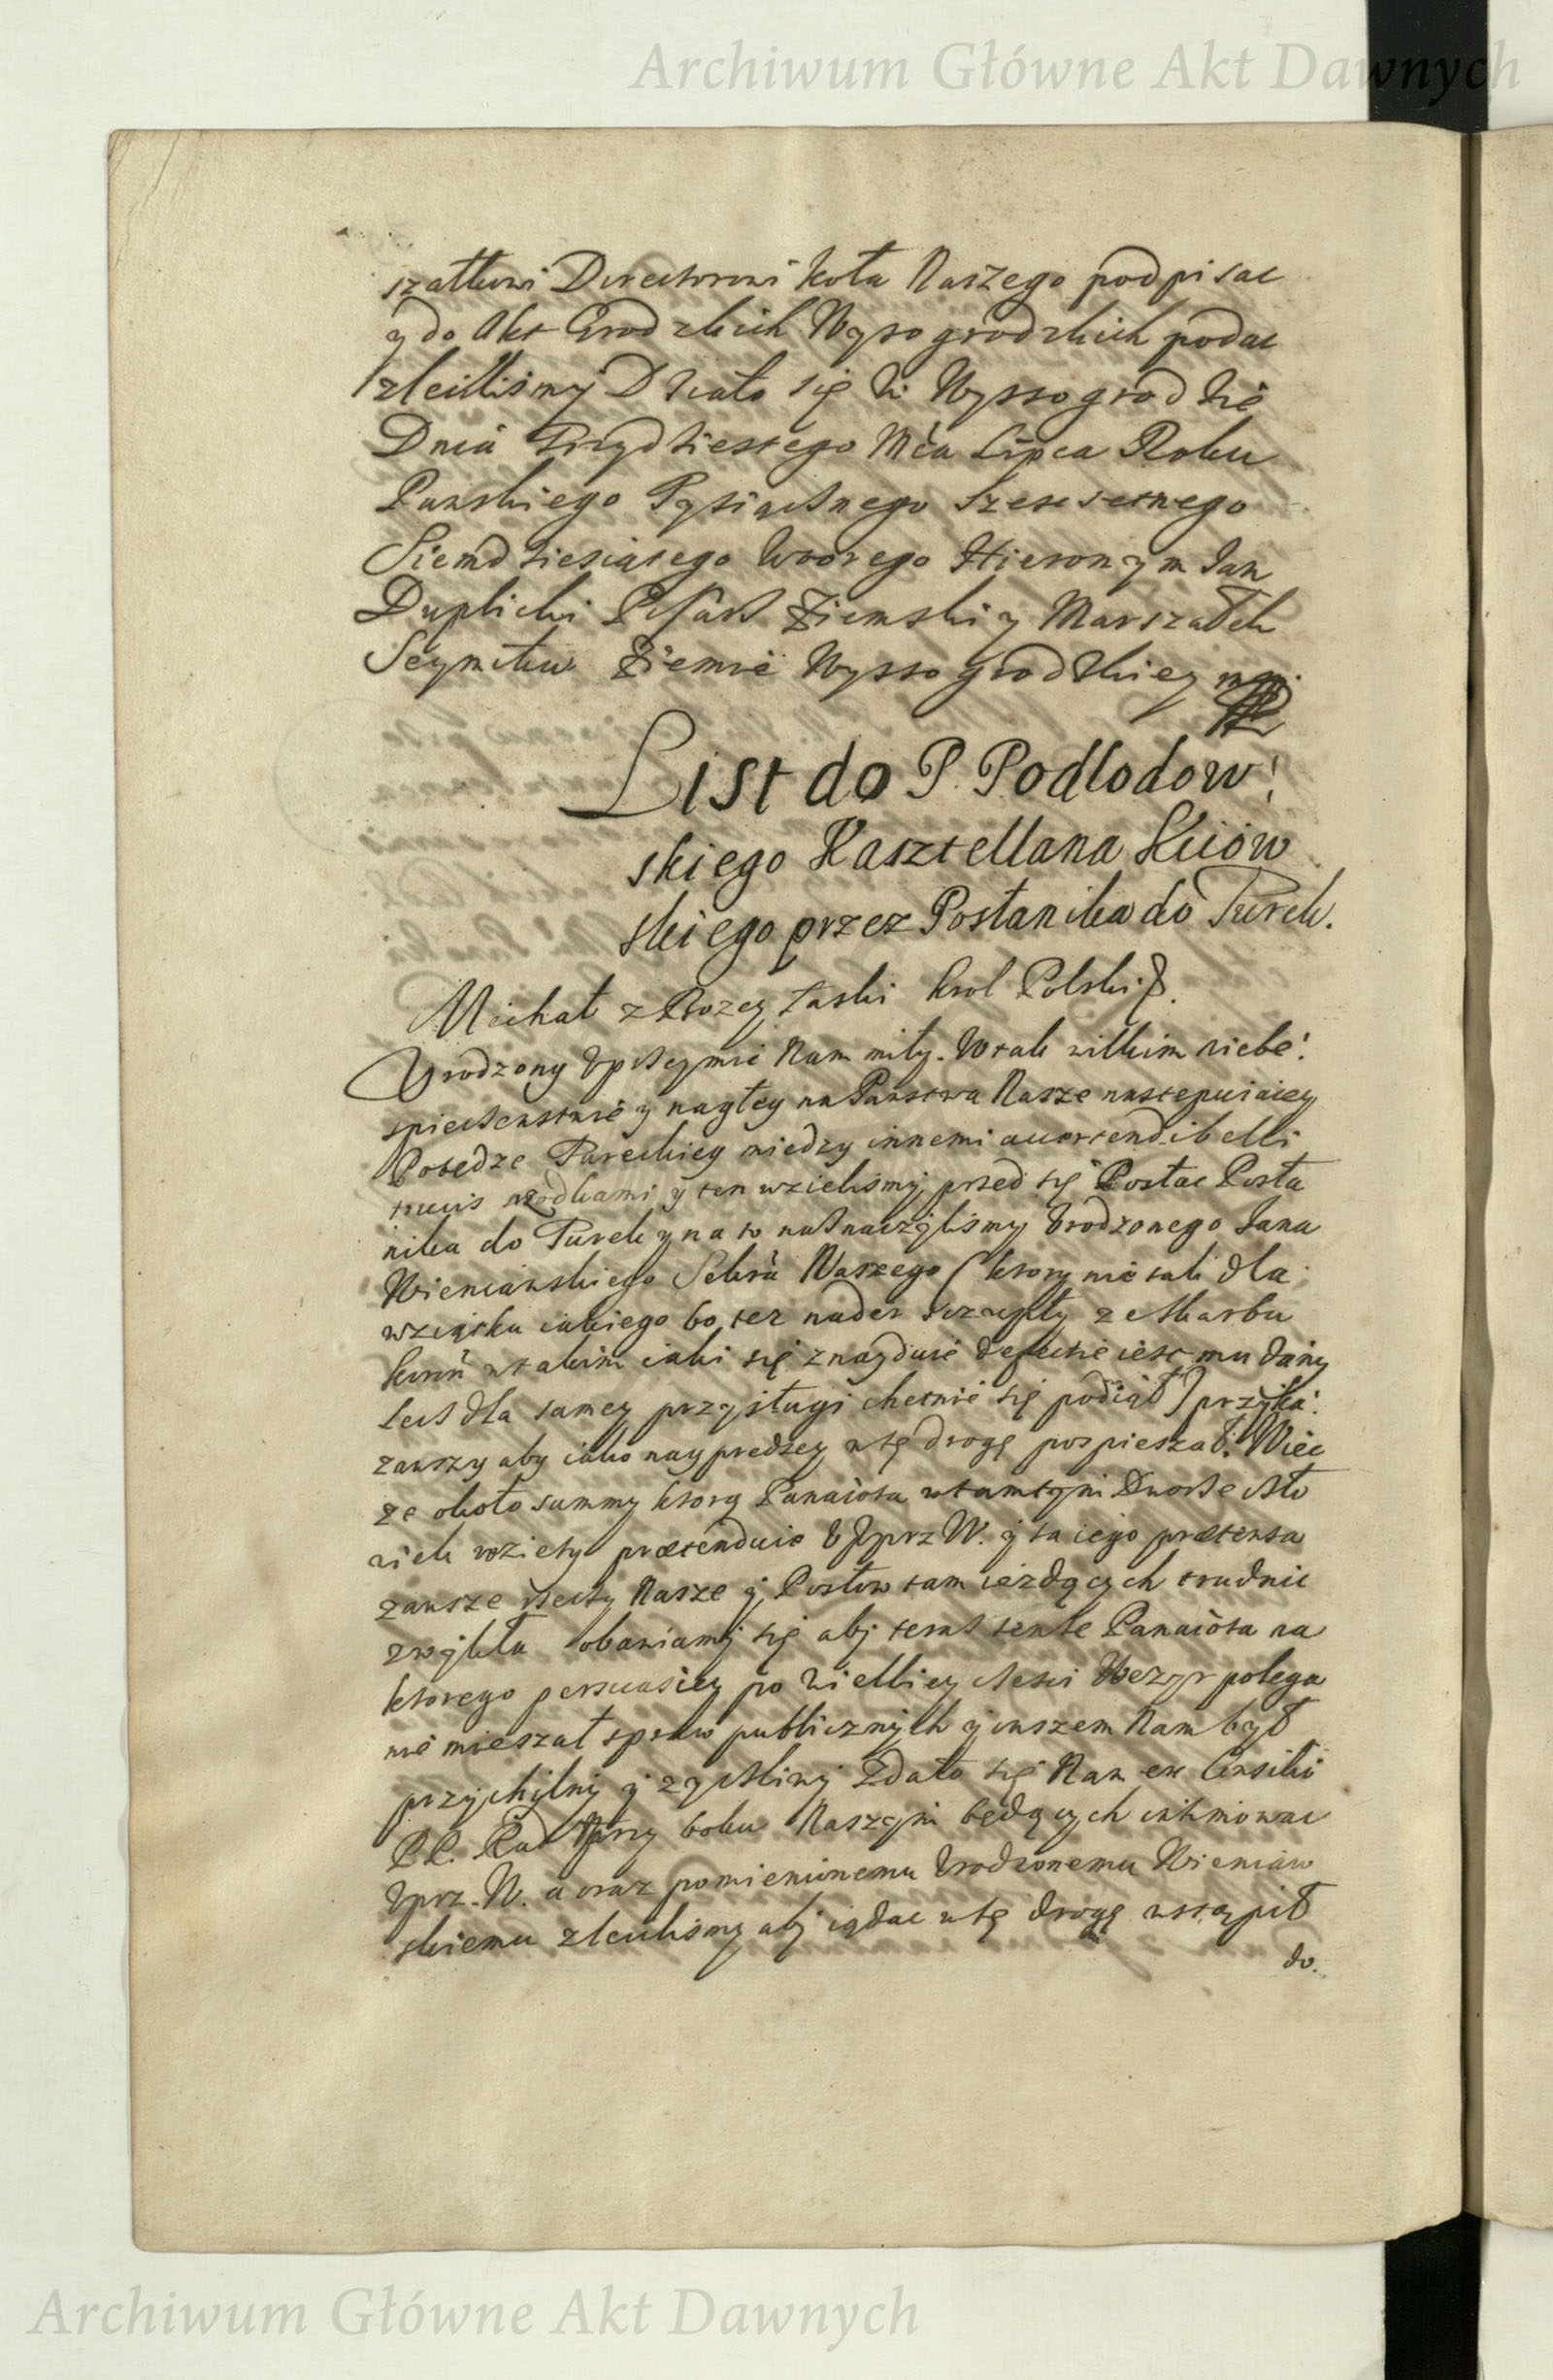 Archiwum Główne Akt Dawnych
szałkowi Directorowi koła Naszego podpisac
y do Akt Grodzkich Wysogrodzkich podac
zleciliśmy Działo się w Wyssogrodzie
Dnia Trzydziestego Mca Lipca Roku
Panskiego Tysiącznego Szescsetnego
Siemdziesiątego wtorego Hieronym Jan
Duplicki Pisarz Ziemski y Marszałek
Seymiku Ziemie Wyssogrodzkiey mp.
List do P. Podlodow:
skiego Kasztellana Kiiow
skiego przez Posłanika do Turek.
Michał z Bozey łaski Krol Polski &.
Urodzony Uprzeymie Nam miły. W tak wielkim niebe:
spieczenstwie y nagłey na Panstwa Nasze nastepuiącey
Potedze Tureckiey miedzy innemi avertendi belli
srodkami y ten wzieliśmy przed się Posłac Posła
nika do Turek y na to naznaczyliśmy Urodzonego Jana
Wieniawskiego Sekra Naszego (ktory nie tak dla
wziątku iakiego bo tez nader szczupły z Skarbu
Koron w takim iaki się znayduie defekcie iest mu dany
lecz dla samey przysługi chetnie się podiął) przyka:
zawszy aby iako naypredzey w tę drogę pospieszał. Wiec
ze około summy ktorą Panaiota w tamtym Dworze czło
wiek wziety prætenduie U Uprz W. y ta iego prætensa
zawsze rzeczy Nasze y Posłow tam ieżdzących trudnic
zwykła obawiamy się aby teraz tenze Panaiota na
ktorego persuasiey po wielkiey czesci Wezyr polega
nie mieszał spraw publicznych y owszem Nam był
przychylny y zyczliwy Zdało się Nam ex Consilio
PP. Rad przy boku Naszym będących intimowac
Uprz. W. a oraz pomienionemu Urodzonemu Wieniaw
skiemu zleciliśmy aby iądac w tę drogę wstąpił
do.
Archiwum Główne Akt Dawnych